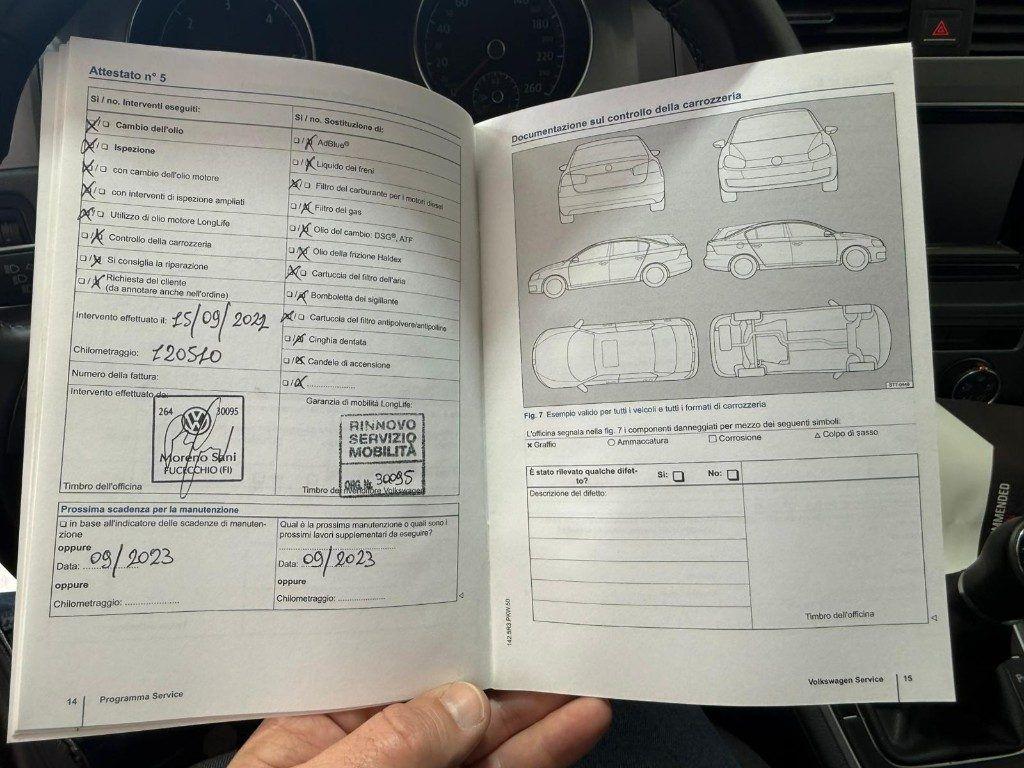 Attestato n° 5
Sì / no. Interventi eseguiti:
Cambio dell'olio
Ispezione
con cambio dell'olio motore
con interventi di ispezione ampliati
Utilizzo di olio motore LongLife
Controllo della carrozzeria
Si consiglia la riparazione
Richiesta del cliente
(da annotare anche nell'ordine)
Intervento effettuato il: 15/09/2021
Chilometraggio: 120510
Numero della fattura:
Intervento effettuato da:
264 30095
Moreno Sani
FUCECCHIO (FI)
Timbro dell'officina
Sì / no. Sostituzione di:
AdBlue®
Liquido dei freni
Filtro del carburante per i motori diesel
Filtro del gas
Olio del cambio: DSG®, ATF
Olio della frizione Haldex
Cartuccia del filtro dell'aria
Bomboletta dei sigillante
Cartuccia del filtro antipolvere/antipolline
Cinghia dentata
Candele di accensione
Garanzia di mobilità LongLife:
RINNOVO
SERVIZIO
MOBILITÀ
ORG. Nr. 30095
Timbro del rivenditore Volkswagen
Prossima scadenza per la manutenzione
❑ in base all'indicatore delle scadenze di manuten-
zione
oppure
Data: 09/2023
oppure
Chilometraggio:
Qual è la prossima manutenzione o quali sono i
prossimi lavori supplementari da eseguire?
Data: 09/2023
oppure
Chilometraggio:
14 Programma Service
Documentazione sul controllo della carrozzeria
Fig. 7 Esempio valido per tutti i veicoli e tutti i formati di carrozzeria
L'officina segnala nella fig. 7 i componenti danneggiati per mezzo dei seguenti simboli:
× Graffio ○ Ammaccatura □ Corrosione △ Colpo di sasso
È stato rilevato qualche difet-
to? Sì: ❑ No: ❑
Descrizione del difetto:
Timbro dell'officina
142.5R3.PKW.50
Volkswagen Service 15